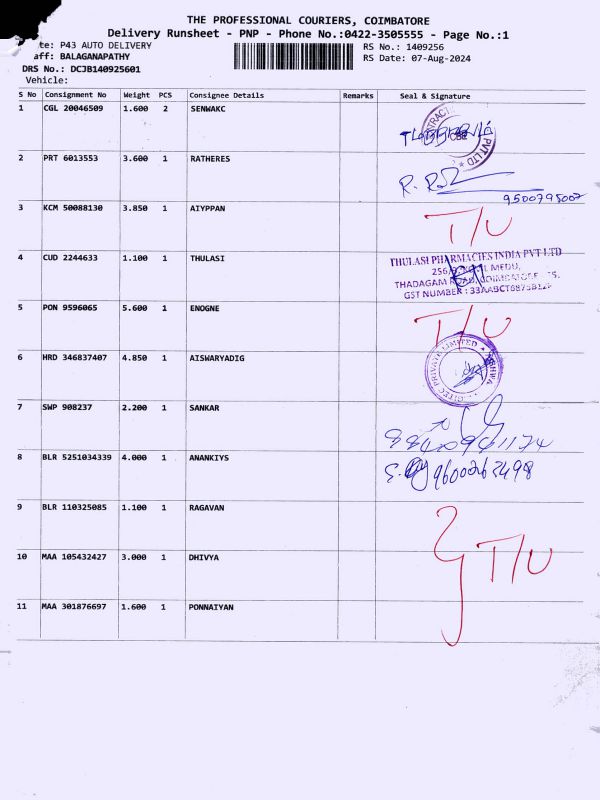 THE PROFESSIONAL COURIERS, COIMBATORE
Delivery Runsheet - PNP - Phone No.:0422-3505555 - Page No.:1
te: P43 AUTO DELIVERY
RS No.: 1409256
aff: BALAGANAPATHY
RS Date: 07-Aug-2024
DRS No.: DCJB140925601
Vehicle:
S No Consignment No Weight PCS Consignee Details Remarks Seal & Signature
1 CGL 20046509 1.600 2 SENWAKC
PVT LTD
2 PRT 6013553 3.600 1 RATHERES
9500795007
3 KCM 50088130 3.850 1 AIYPPAN T/U
4 CUD 2244633 1.100 1 THULASI
THULASI PHARMACIES INDIA PVT LTD
THADAGAM ROAD, COIMBATORE
GST NUMBER : 33AABCT6875B1Z
5 PON 9596065 5.600 1 ENOGNE T/U
6 HRD 346837407 4.850 1 AISWARYADIG
PRIVATE LIMITED
7 SWP 908237 2.200 1 SANKAR
8 BLR 5251034339 4.000 1 ANANKIYS
9600262498
9 BLR 110325085 1.100 1 RAGAVAN
10 MAA 105432427 3.000 1 DHIVYA T/U
11 MAA 301876697 1.600 1 PONNAIYAN